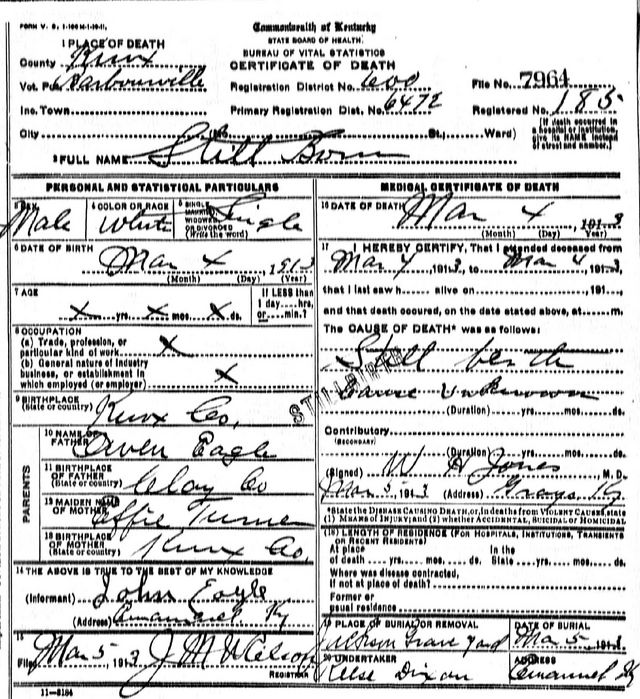 FORM V. S. 1-
Commonwealth of Kentucky
STATE BOARD OF HEALTH
BUREAU OF VITAL STATISTICS
CERTIFICATE OF DEATH
1 PLACE OF DEATH
County Knox
Vot. Pct. Barbourville
Inc. Town
City
Registration District No. 600
Primary Registration Dist. No. 6472
File No. 7964
Registered No. 185
(No. St., Ward)
[If death occurred in a hospital or institution, give its NAME instead of street and number.]
2 FULL NAME Still Born
PERSONAL AND STATISTICAL PARTICULARS
3 SEX
Male
4 COLOR OR RACE
White
5 SINGLE MARRIED WIDOWED OR DIVORCED (Write the word)
Single
6 DATE OF BIRTH
Mar 4 1913
(Month) (Day) (Year)
7 AGE
x yrs. x mos. x ds.
If LESS than 1 day hrs. or min.?
8 OCCUPATION
(a) Trade, profession, or particular kind of work x
(b) General nature of industry business, or establishment in which employed (or employer) x
9 BIRTHPLACE
(State or country) Knox Co,
PARENTS
10 NAME OF FATHER Owen Eagle
11 BIRTHPLACE OF FATHER (State or country) Clay Co
12 MAIDEN NAME OF MOTHER Effie Turner
13 BIRTHPLACE OF MOTHER (State or country) Knox Co,
14 THE ABOVE IS TRUE TO THE BEST OF MY KNOWLEDGE
(Informant) John Eagle
(Address) Emanuel, Ky
15
Filed Mar 5 1913 J M Wilson
REGISTRAR
11-3184
MEDICAL CERTIFICATE OF DEATH
16 DATE OF DEATH
Mar 4 1913
(Month) (Day) (Year)
17 I HEREBY CERTIFY, That I attended deceased from
Mar 4, 1913, to Mar 4, 1913,
that I last saw h alive on, 191,
and that death occured, on the date stated above, at m.
The CAUSE OF DEATH* was as follows:
Still birth
STILLBIRTH
Cause Unknown
(Duration) yrs. mos. ds.
Contributory
(SECONDARY)
(Duration) yrs. mos. ds.
(Signed) W H Jones, M.D.
Mar 5, 1913 (Address) Grays Ky
*State the DISEASE CAUSING DEATH, or, in deaths from VIOLENT CAUSES, state (1) MEANS OF INJURY; and (2) whether ACCIDENTAL, SUICIDAL OR HOMICIDAL
(18) LENGTH OF RESIDENCE (FOR HOSPITALS, INSTITUTIONS, TRANSIENTS OR RECENT RESIDENTS)
At place of death yrs. mos. ds. In the State yrs. mos. ds.
Where was disease contracted, if not at place of death?
Former or usual residence
19 PLACE OF BURIAL OR REMOVAL
Jackson Grave yard
DATE OF BURIAL
Mar 5, 1913
20 UNDERTAKER
Dixon
ADDRESS
Emanuel Ky